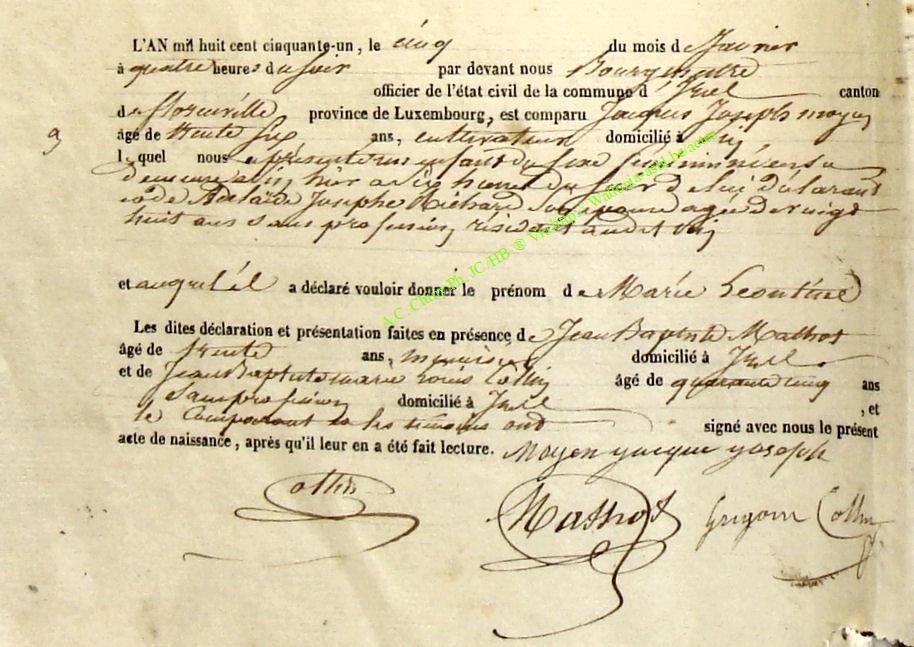 L'AN mil huit cent cinquante-un, le cinq du mois de Février
à quatre heures du soir par devant nous Bourgmestre
officier de l'état civil de la commune d' Izel canton
de Florenville province de Luxembourg, est comparu Jacques Joseph moyen
9 âgé de trente six ans, cultivateur domicilié à
lequel nous a présenté un enfant du sexe féminin né en sa
demeure hier a six heures du soir de lui déclarant
et de Adélaïde Josephe Richard son épouse agée de vingt
huit ans sans profession, résidant audit
et auquel il a déclaré vouloir donner le prénom de Marie Leontine
Les dites déclaration et présentation faites en présence de Jean Baptiste Mathot
âgé de trente ans, menuisier domicilié à Izel
et de Jean Baptiste marie Louis Collin âgé de quarante cinq ans
sans profession domicilié à Izel , et
le Comparant et les témoins ont signé avec nous le présent
acte de naissance, après qu'il leur en a été fait lecture. Moyen jacque joseph
Mathot Collin